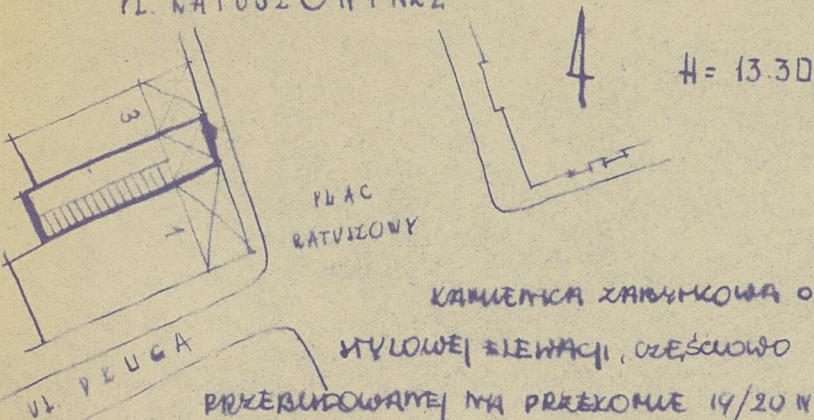 PL. RATUSZOWY NR 2
H = 13.30
3
PLAC
RATUSZOWY
1
UL. DŁUGA
KAMIENICA ZABYTKOWA O
STYLOWEJ ELEWACJI, CZĘŚCIOWO
PRZEBUDOWANEJ NA PRZEŁOMIE 19/20 W